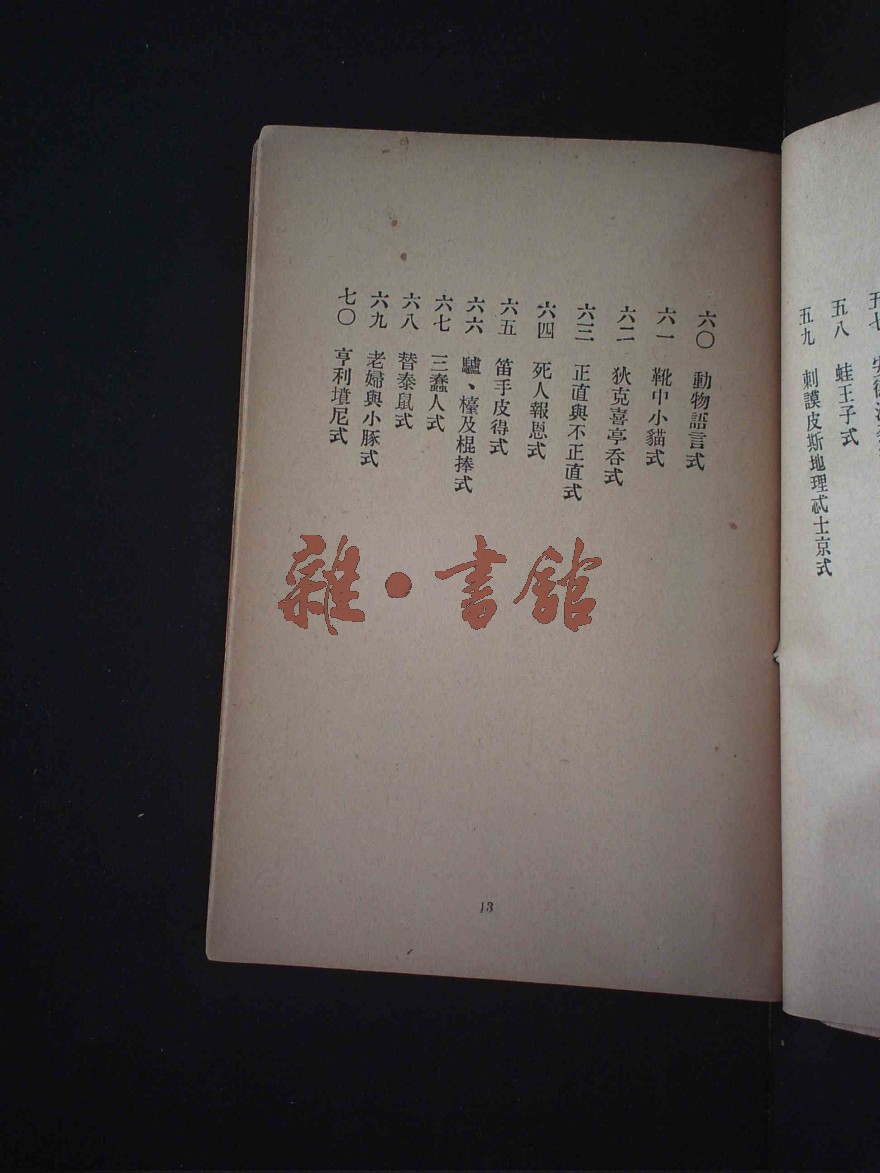 五八 蛙王子式
五九 刺謨皮斯地理忒士京式
六〇 動物語言式
六一 靴中小貓式
六二 狄克喜亭吞式
六三 正直與不正直式
六四 死人報恩式
六五 笛手皮得式
六六 驢、檯及棍捧式
六七 三蠢人式
六八 替泰鼠式
六九 老婦與小豚式
七〇 亨利墳尼式
13
雜·書館